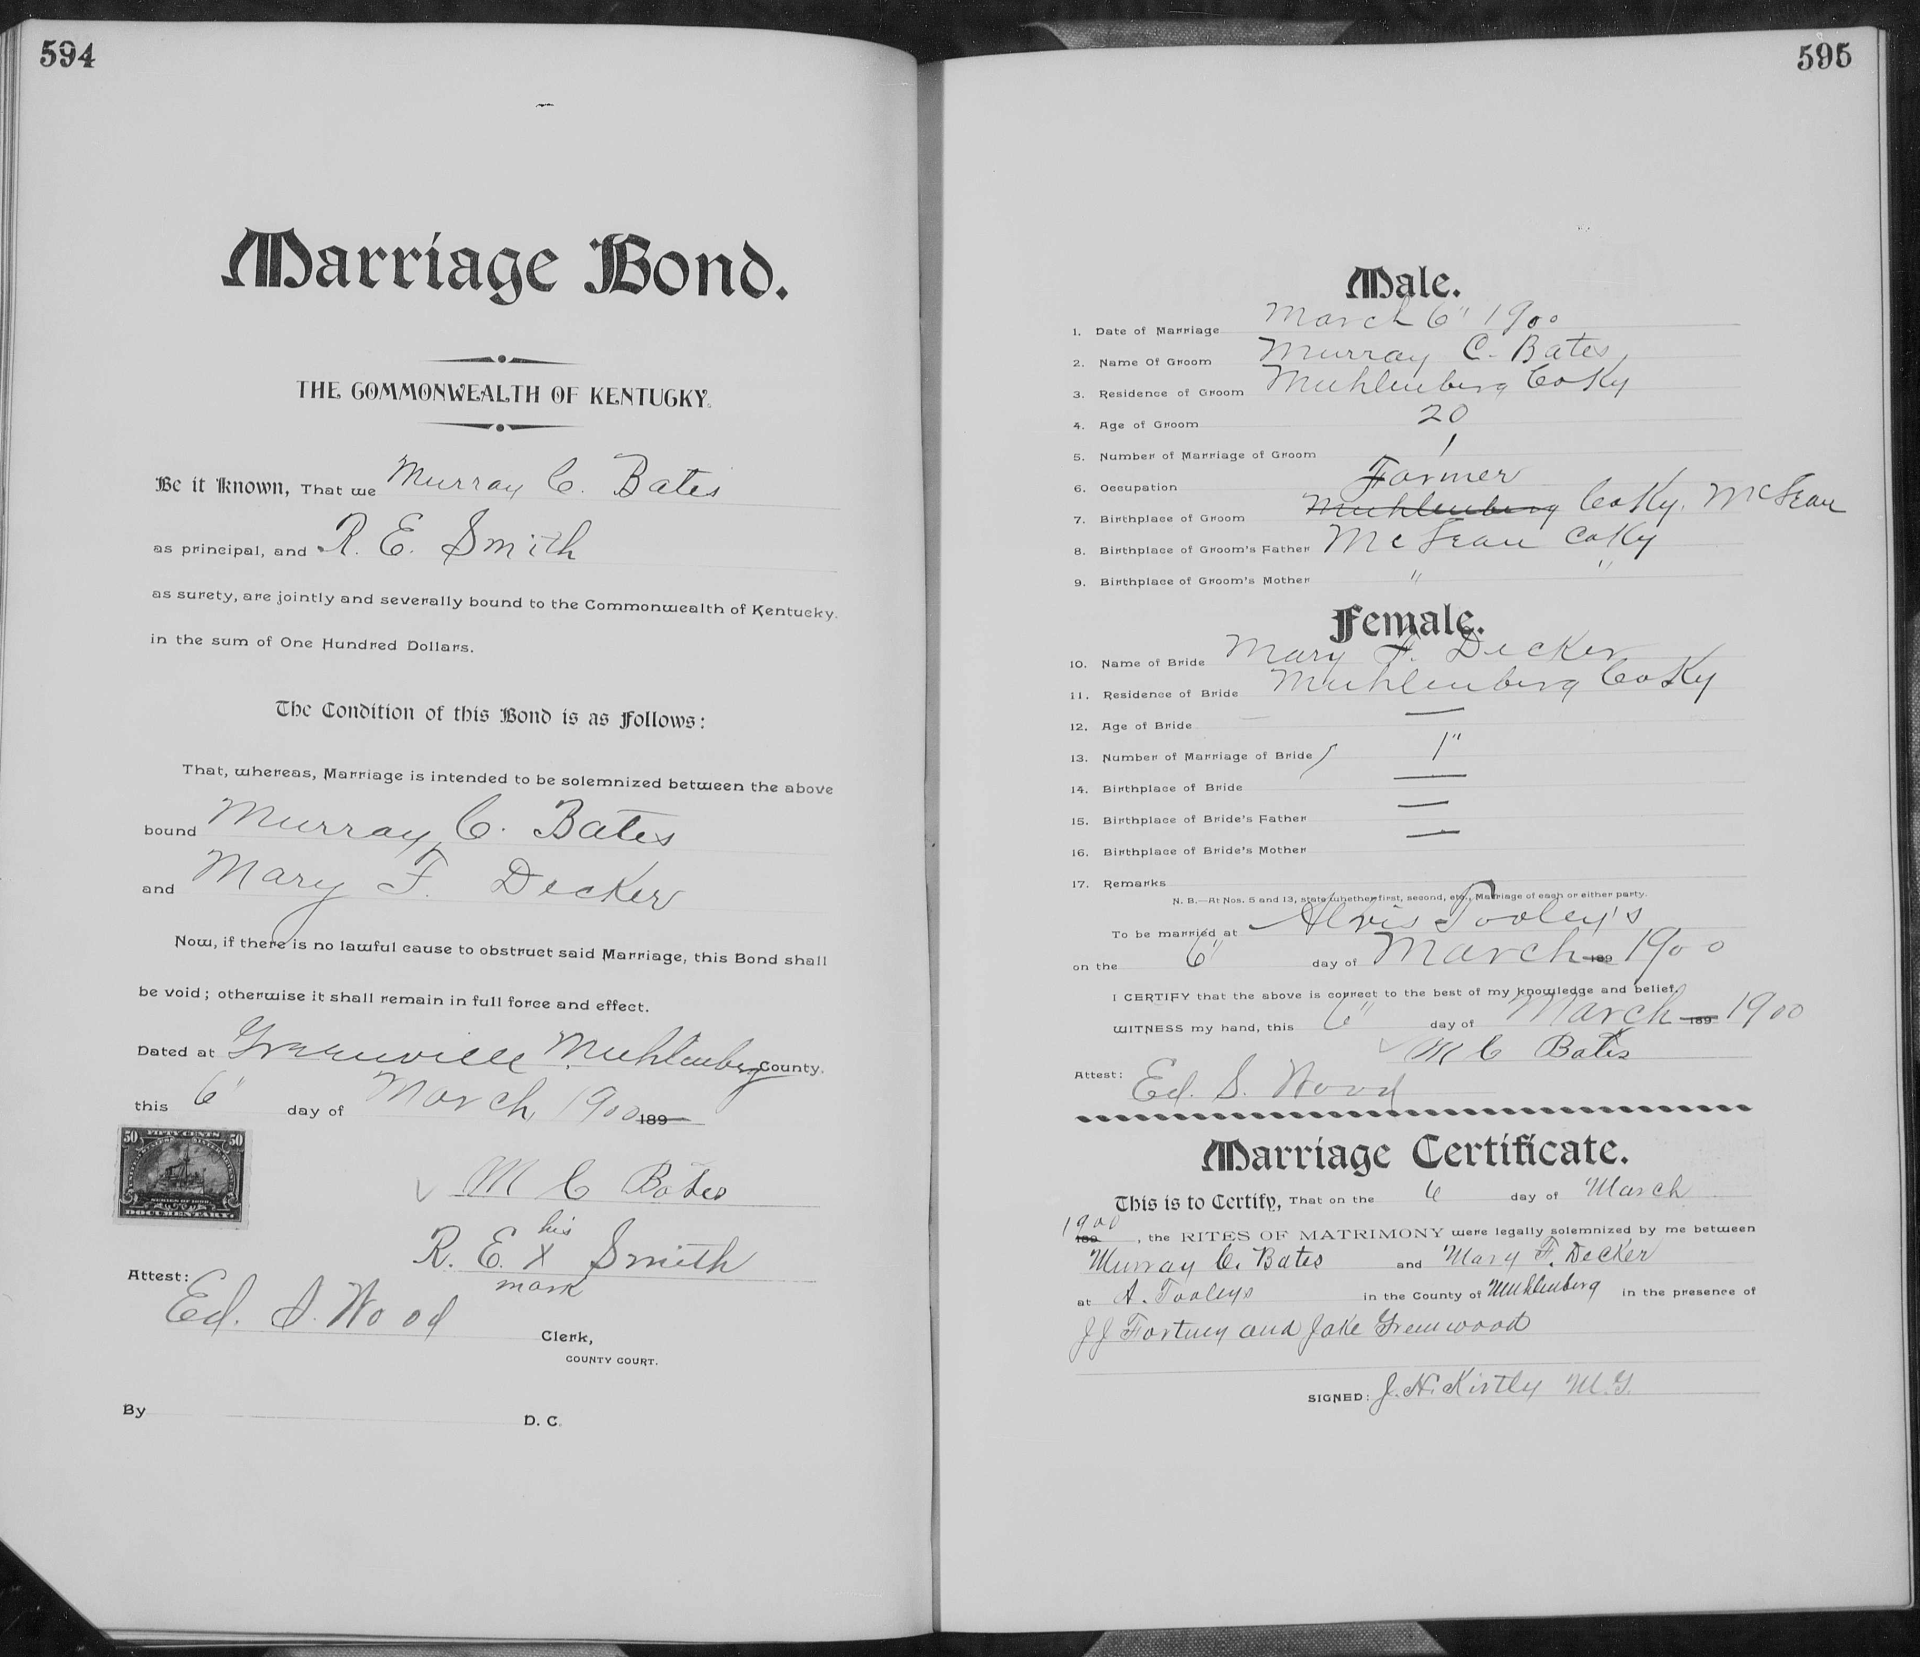 594
Marriage Bond.
THE COMMONWEALTH OF KENTUCKY.
Be it Known, That we Murray C. Bates
as principal, and R. E. Smith
as surety, are jointly and severally bound to the Commonwealth of Kentucky.
in the sum of One Hundred Dollars.
The Condition of this Bond is as Follows:
That, whereas, Marriage is intended to be solemnized between the above
bound Murray C. Bates
and Mary F. Decker
Now, if there is no lawful cause to obstruct said Marriage, this Bond shall
be void; otherwise it shall remain in full force and effect.
Dated at Greenville Muhlenberg County,
this 6" day of March 1900 189
50 FIFTY CENTS 50
SERIES OF 1898
DOCUMENTARY.
M C Bates
R. E. his X mark Smith
Attest:
Ed. S. Wood Clerk,
COUNTY COURT.
By D. C.
595
Male.
1. Date of Marriage March 6" 1900
2. Name Of Groom Murray C. Bates
3. Residence of Groom Muhlenberg Co Ky
4. Age of Groom 20
5. Number of Marriage of Groom 1
6. Occupation Farmer
7. Birthplace of Groom Muhlenberg Co Ky. McLean
8. Birthplace of Groom's Father McLean Co Ky
9. Birthplace of Groom's Mother " "
Female.
10. Name of Bride Mary F. Decker
11. Residence of Bride Muhlenberg Co Ky
12. Age of Bride —
13. Number of Marriage of Bride 1"
14. Birthplace of Bride —
15. Birthplace of Bride's Father —
16. Birthplace of Bride's Mother —
17. Remarks
N. B.—At Nos. 5 and 13, state whether first, second, etc., Marriage of each or either party.
To be married at Alvis Tooley's
on the 6" day of March 189 1900
I CERTIFY that the above is correct to the best of my knowledge and belief.
WITNESS my hand, this 6" day of March 189 1900
M C Bates
Attest: Ed. S. Wood
Marriage Certificate.
This is to Certify, That on the 6 day of March
1900 189 , the RITES OF MATRIMONY were legally solemnized by me between
Murray C. Bates and Mary F. Decker
at A. Tooleys in the County of Muhlenberg in the presence of
J J Fortney and Jake Greenwood
SIGNED: J. N. Kirtley M.G.